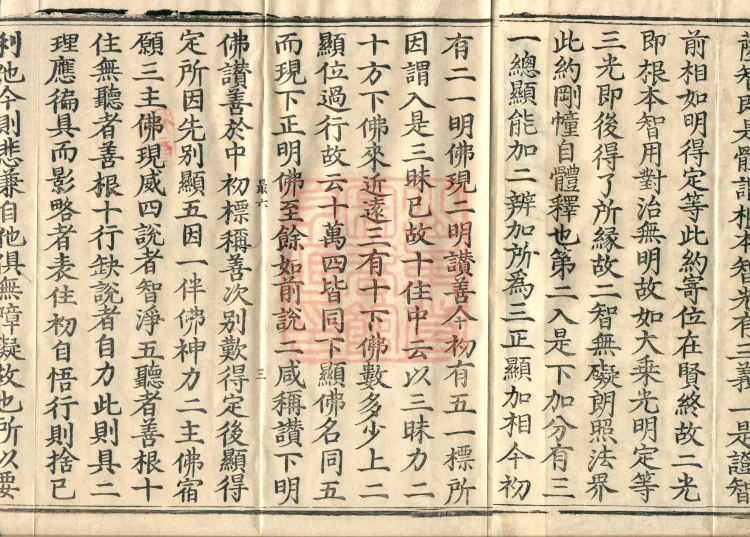 薩智即是體謂根本智光有三義一是證智
前相如明得定等此約寄位在賢終故二光
即根本智用對治無明故如大乘光明定等
三光即後得了所緣故二智無礙朗照法界
此約剛幢自體釋也第二入是下加分有三
一總顯能加二辨加所為三正顯加相今初
有二一明佛現二明讃善今初有五一標所
因謂入是三昧已故十住中云以三昧力二
十方下佛來近遠三有十下佛數多少上二
顯位過行故云十萬四皆同下顯佛名同五
而現下正明佛至餘如前說二咸稱讃下明
最六
三
佛讃善於中初標稱善次別歎得定後顯得
定所因先別顯五因一伴佛神力二主佛宿
願三主佛現威四說者智淨五聽者善根十
住無聽者善根十行缺說者自力此則具二
理應徧具而影略者表住初自悟行則捨已
利他今則悲兼自他俱無障礙故也所以要